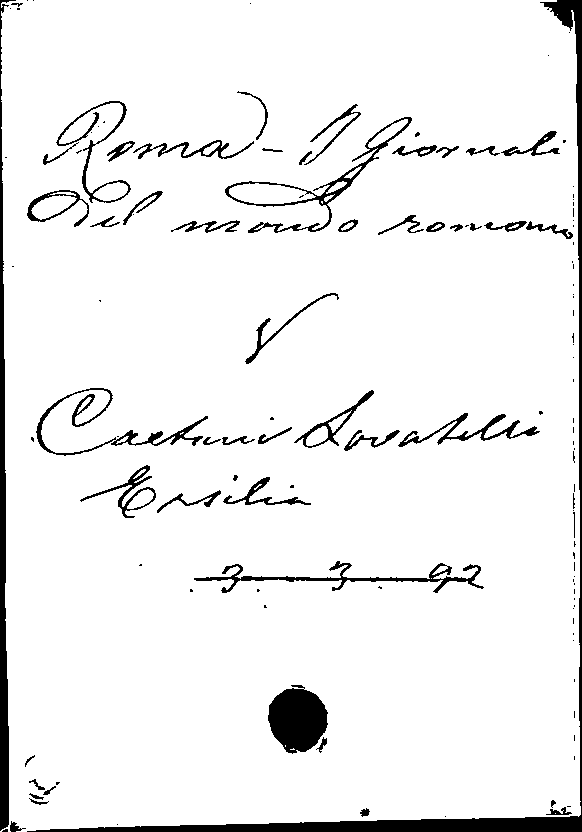 Roma - I Giornali
del mondo romano
V
Caetani Lovatelli
Ersilia
3 3 92